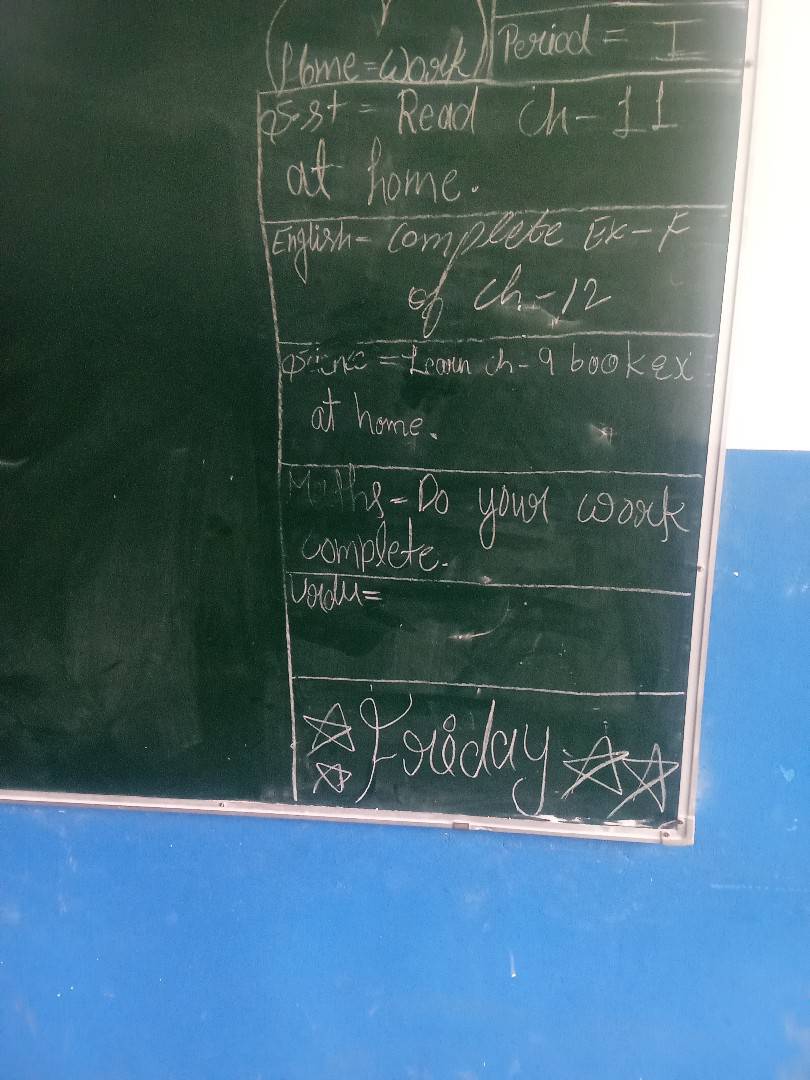 Home=Work
Period = I
S.st = Read ch-11
at home.
English- Complete Ex-F
of ch-12
Science = Learn ch-9 book ex
at home.
Maths- Do your work
complete.
Urdu=
Friday